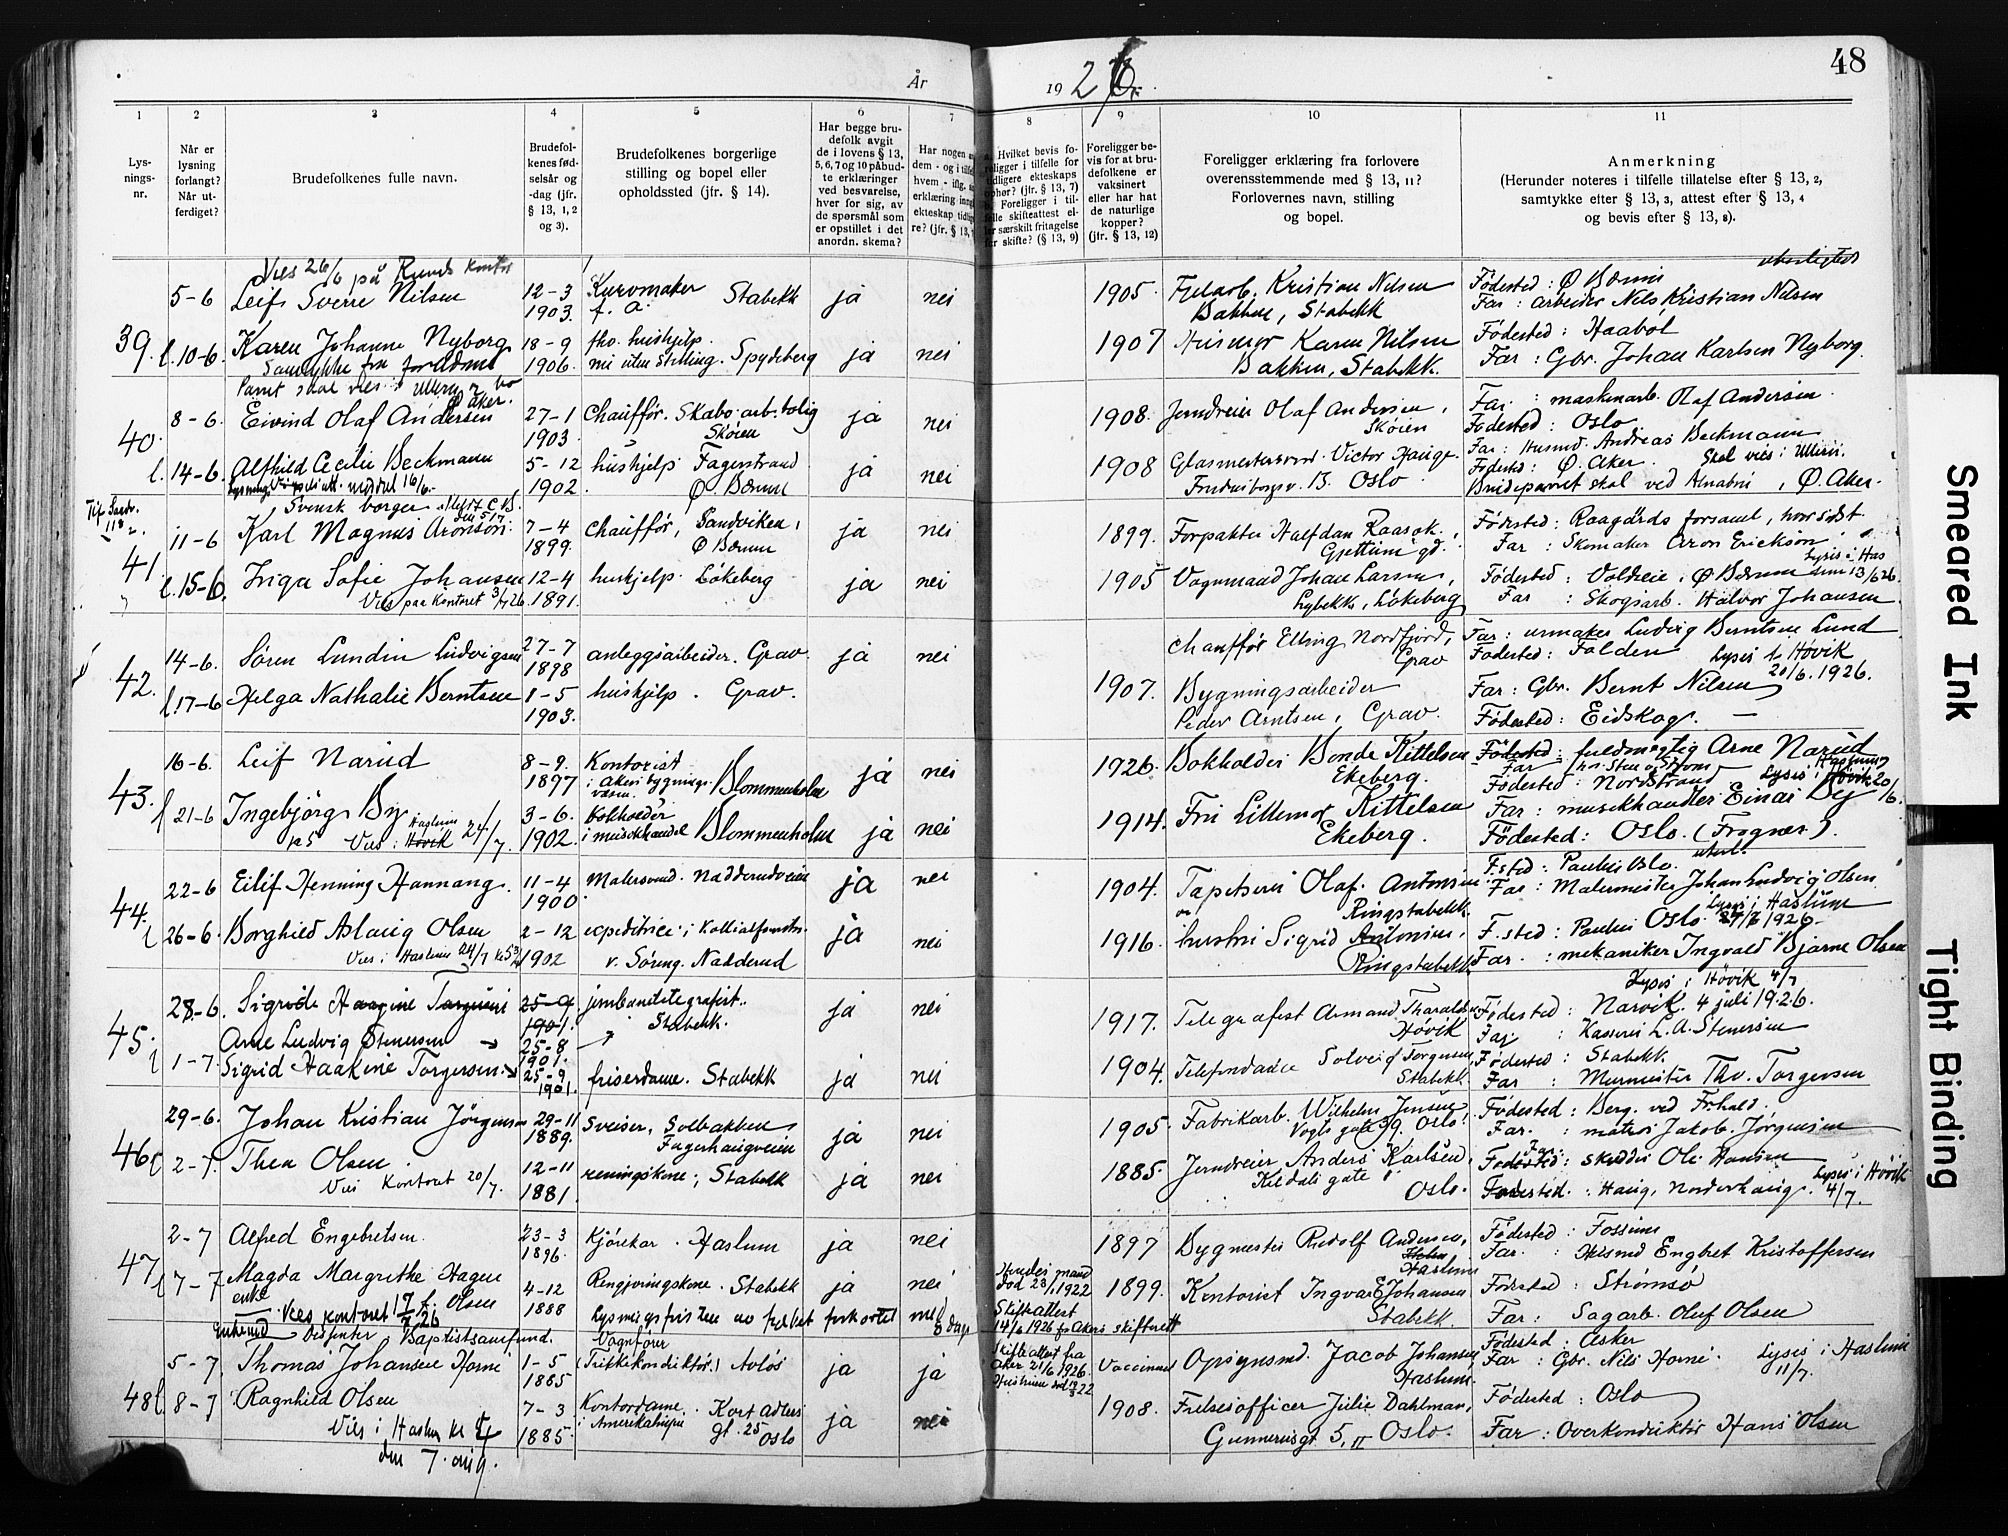 48
År 1926.
1
Lys-
nings-
nr.
2
Når er
lysning
forlangt?
Når ut-
ferdiget?
3
Brudefolkenes fulle navn.
4
Brudefol-
kenes fød-
selsår og
-dag (jfr.
§ 13, 1, 2
og 3).
5
Brudefolkenes borgerlige
stilling og bopel eller
opholdssted (jfr. § 14).
6
Har begge bru-
defolk avgit
de i lovens § 13,
5, 6, 7 og 10 påbud-
te erklæringer
ved besvarelse,
hver for sig, av
de spørsmål som
er opstillet i det
anordn. skema?
7
Har nogen a
dem - og i tilfe
hvem - iflg.
erklæring inng
ekteskap tidlig
re? (jfr. § 13,
8
Hvilket bevis fo-
religger i tilfelle for
tidligere ekteskaps
ophør? (jfr. § 13, 7)
Foreligger i til-
felle skifteattest el-
ler særskilt fritagelse
for skifte? (§ 13, 9)
9
Foreligger be-
vis for at bru-
defolkene er
vaksinert
eller har hat
de naturlige
kopper?
(jfr. § 13, 12)
10
Foreligger erklæring fra forlovere
overensstemmende med § 13, 11?
Forlovernes navn, stilling
og bopel.
11
Anmerkning
(Herunder noteres i tilfelle tillatelse efter § 13, 2,
samtykke efter § 13, 3, attest efter § 13, 4
og bevis efter § 13, 8).
Vies 26/6 på kontor
39. 5-6 Leif Sverre Nilsen 12-3 1903. Kurvmaker Stabekk ja nei 1905. Kristian Nilsen Bakken, Stabekk Fødested: Ø Bærum
Far: arbeider Nils Kristian Nilsen
l. 10-6. Karen Johanne Nyborg 18-9 1906. hushjelp. nu uten stilling. Spydeberg ja nei 1907 Husmor Karen Nilsen Bakken, Stabekk. Fødested: Haabøl
Far: Gbr. Johan Karlsen Nyborg.
40. 8-6. Eivind Olaf Andersen 27-1 1903. Chauffør. Skabo arb. bolig Skøien ja nei 1908. Jerndreier Olaf Andersen, Skøien Far: maskinarb. Olaf Andersen
Fødested: Oslo
l. 14-6. Alfhild Cecilie Beckmann 5-12 1902. hushjelp Fagerstrand Ø. Bærum ja nei 1908 Victor Hauge B. Oslo Far: Husmd. Andreas Beckmann
Fødested: Ø. Aker. Skal vies i Ullern.
Brudeparret skal ved Alnabru, Ø. Aker.
Svensk borger
41. 11-6 Karl Magnus Aronson. 7-4 1899. Chauffør, Sandviken, Ø Bærum ja nei 1899. Forpakter Halfdan Gjettum gd. Fødested:
Far: Skomaker Aron Erickson
l. 15-6. Inga Sofie Johansen 12-4 1891. hushjelp. Løkeberg ja nei 1905 Vognmand Johan Larsen, Lybekk, Løkeberg Fødested: Ø Bærum
Far: Skogsarb. Halvor Johansen
Vies paa Kontoret 3/7 26.
42. 14-6. Søren Lundin Ludvigsen 27-7 1898 anleggsarbeider. Grav ja nei Chauffør Elling Nordfjord, Grav Far: urmaker Ludvig Berntsen Lund
Fødested: Folden Lyses i Høvik 20/6. 1926.
l. 17-6 Helga Nathalie Berntsen 1-5 1903. hushjelp. Grav. 1907. Bygningsarbeider Peder Arntsen, Grav. Far: Gbr. Bernt Nilsen
Fødested: Eidskog. —
43. 16-6. Leif Narud 8-9. 1897 Kontorist i Akers bygnings- væsen. Blommenholm ja nei 1926. Bokholder Bonde Kittelsen Ekeberg. Far: fuldmægtig Arne Narud
Fødested: Nordstrand
l. 21-6 Ingebjørg By 3-6. 1902. bokholder i musikhandel Blommenholm ja nei 1914. Fru Lillemor Kittelsen Ekeberg. Far: musikhandler Einar By
Fødested: Oslo. (Frogner).
Vies i Haslum 24/7.
44. 22-6 Eilif Henning Hannang. 11-4 1900. Malersvend. Nadderudveien ja nei 1904. Tapetserer Olaf Antonsen Ringstabekk. F.sted: Paulus Oslo.
Far: Malermester Johan Ludvig Olsen
l. 26-6. Borghild Aslaug Olsen 2-12 1902 expeditrice i v. Søreng. Nadderud ja nei 1916. hustru Sigrid Antonsen, Ringstabekk F.sted: Paulus Oslo. Lyses i Haslum 27/6 1926.
Far: mekaniker Ingvald Bjarne Olsen
Vies i Haslum 24/7
45. 28-6. Sigride Haagine Torgersens 25-9 1901. jernbanetelegrafist. Stabekk. ja nei 1917. Telegrafist Armand Tharaldsen, Høvik Fødested: Narvik. 4 juli 1926.
Lyses i Høvik 4/7
Arne Ludvig Stenersen 25-8 1901. Far: Kasserer L. A. Stenersen
l. 1-7. Sigrid Haakine Torgersen. 25-9 1901. friserdame. Stabekk ja nei 1904. Telefondame Solveig Torgersen, Stabekk Fødested: Stabekk
Far: Murmester Thv. Torgersen
46. 29-6. Johan Kristian Jørgensen 29-11 1889. Sveiser, Solbakken, Fagerhaugveien ja nei 1905. Fabrikarb. Wilhelm Jensen, Vogts gate 39, Oslo. Fødested: Berg. ved Fr.hald.
Far: matros Jacob Jørgensen
l. 2-7. Thea Olsen. 12-11 1881. rengjøringskone, Stabekk ja nei 1885. Jerndreier Anders Karlsen, gate Oslo. Far: skrædder Ole Hansen
Fødested: Haug, Norderhaug. Lyses i Høvik 4/7.
Vies Kontoret 20/7.
47. 2-7 Alfred Engebretsen. 23-3 1896. Kjørekar. Haslum ja nei 1897 Bygmester Rudolf Andersen, Haslum Fødested: Fossum
Far: Husmd Engbret Kristoffersen
l. 7-7 Magda Margrethe Hagen enke Olsen 4-12 1888 Rengjøringskone. Stabekk ja nei Hendes mand død 23/1. 1922 Skifteattest 14/6 1926 fr Akers skifterett 1899. Kontorist Ingvar Johansen Stabekk. Fødested: Strømsø
Far: Sagarb. Oluf Olsen
Vies kontoret 17/7 26
Lysningsfristen forkortet
Enkemd Dissenter Baptistsamfund.
48. 5-7. Thomas Johansen Horni 1-5 1885 Vognfører (Trikkekonduktør) Avløs ja ja Skifteattest fra Aker 21/6 1926. Hustruen død 22 Vaccinert Opsynsmd. Jacob Johansen, Haslum. Fødested: Asker
Far: Gbr. Nils Horni. Lyses i Haslum 11/7.
l. 8-7 Ragnhild Olsen 7-3 1885. Kontordame i Kort Adlers gt. 25 Oslo ja nei 1908. Frelsesofficer Julie Dahlman, Gunnerusgt 5, II Oslo. Fødested: Oslo
Far: Overkonduktør Hans Olsen
Vies i Haslum kl
den 7. aug.
Smeared Ink
Tight Binding